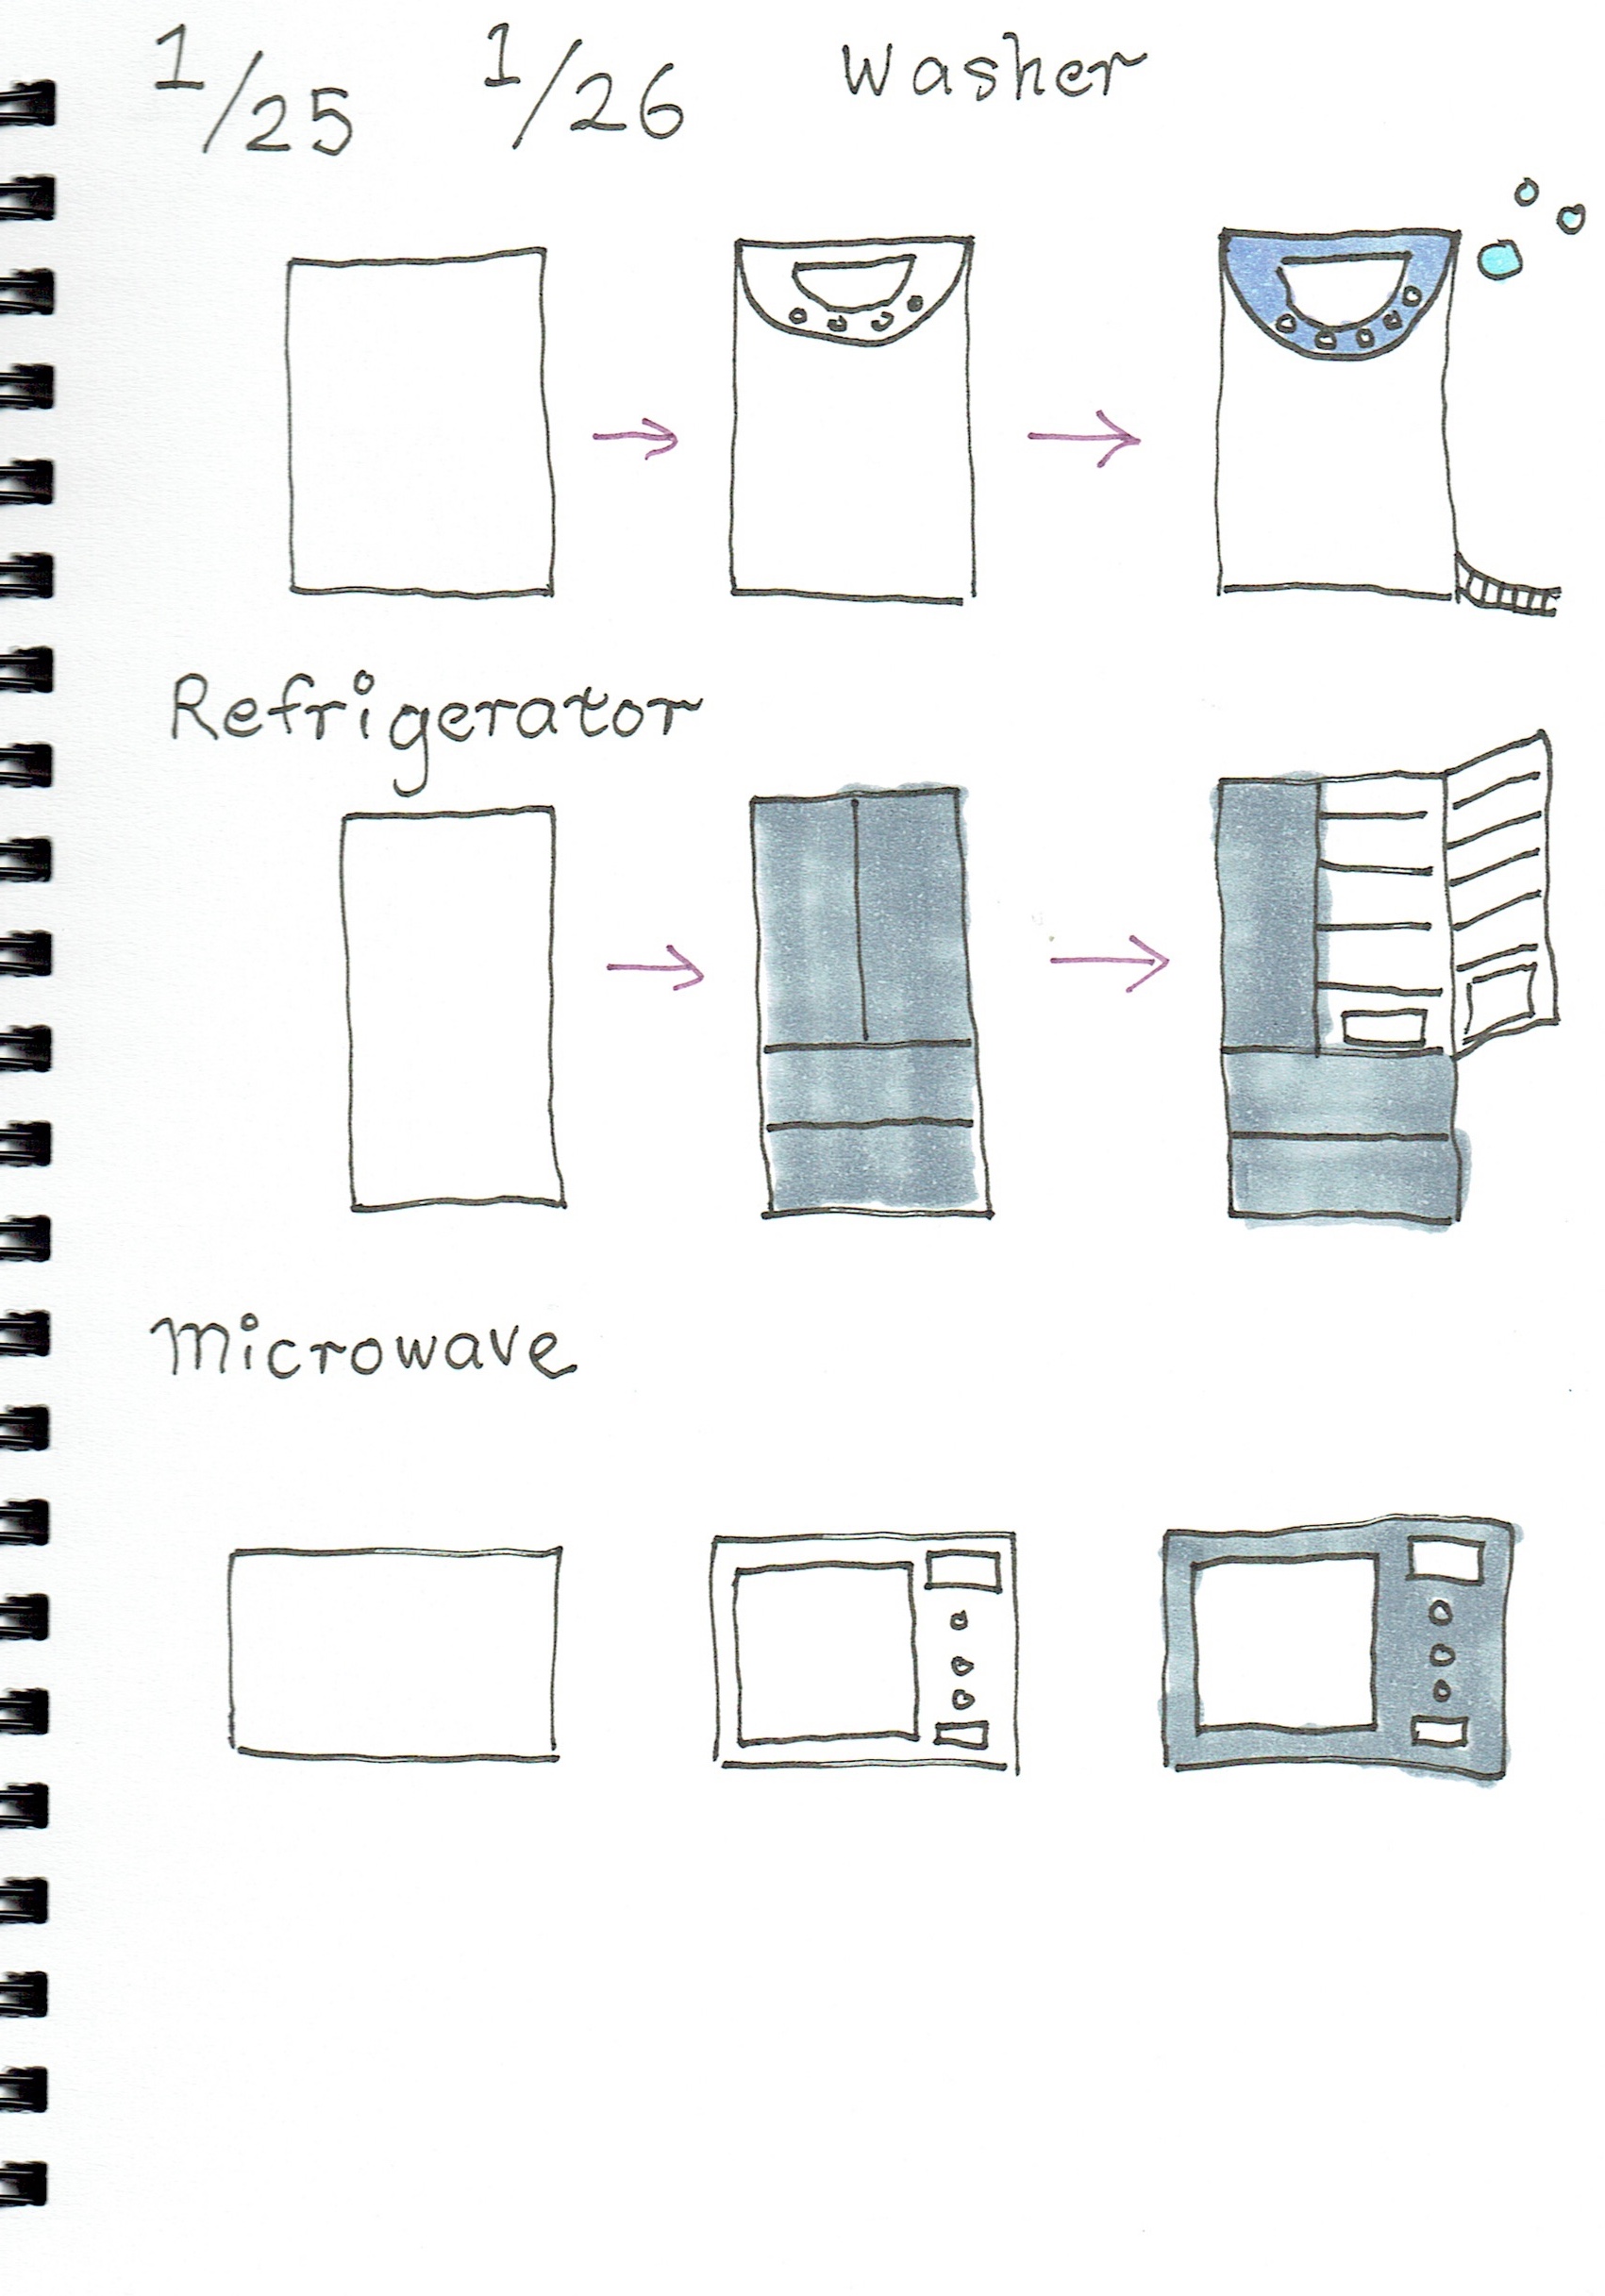 1/25 1/26 Washer
Refrigerator
Microwave